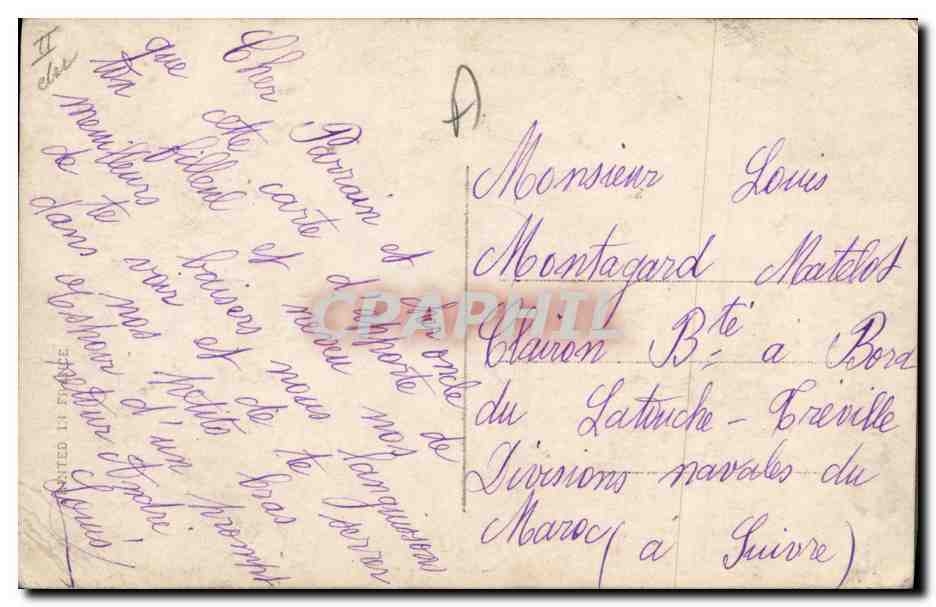 II
Cher Parrain et cher oncle
que cette carte t'apporte de
ton filleul et neveu nos
meilleurs baisers et nous languissons
de te voir et de te serrer
dans nos petits bras
et espoir d'un prompt
retour André
Louis
Monsieur Louis
Montagard Matelot
Clairon Bté a Bord
du Latouche-Tréville
Divisions navales du
Maroc (à Suivre)
PRINTED IN FRANCE
CPAPHIL